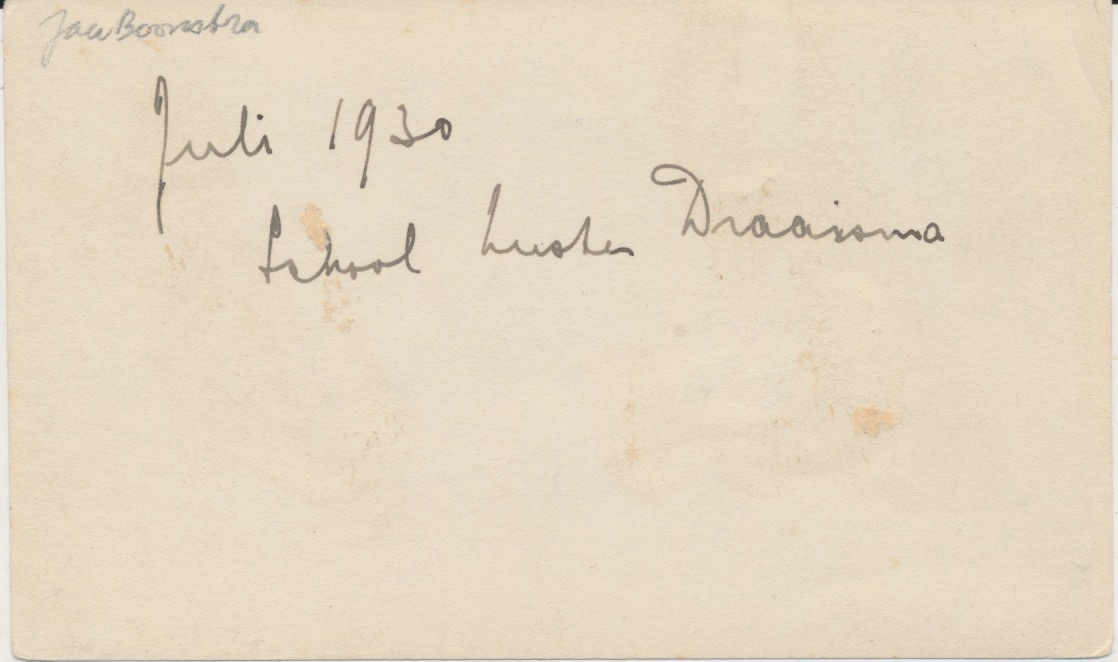 Jan Boonstra
Juli 1930
School Draaisma